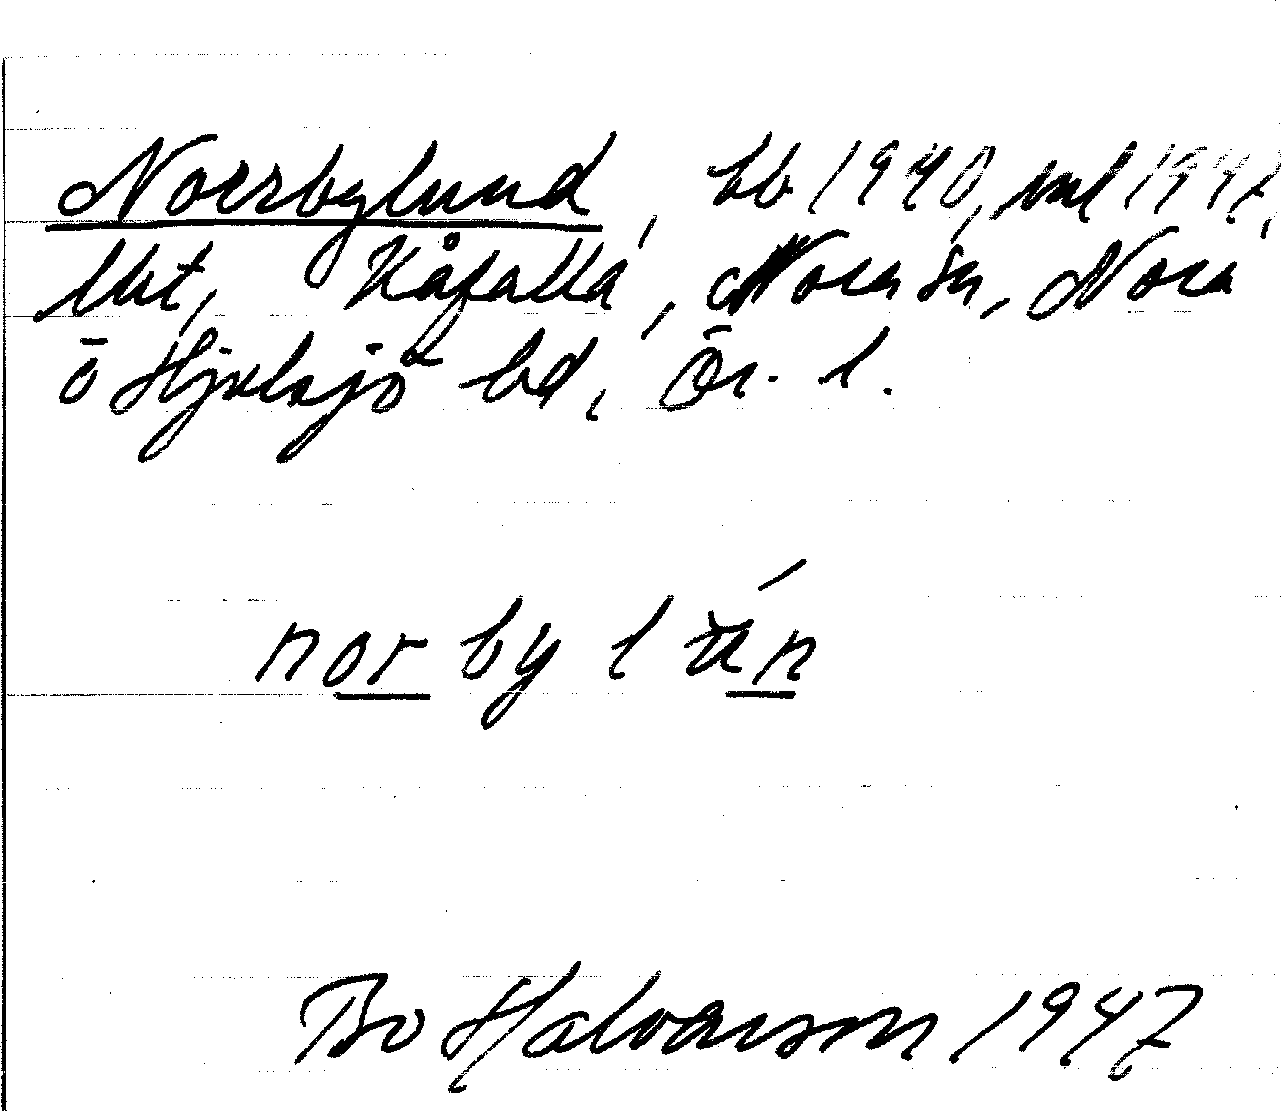 Norrbylund, bb 1940, ml 1947,
lht, Kåfalla, Nora sn, Nora
o Hjulsjö bd, Ör. l.
norbylun
Bo Halvarson 1947